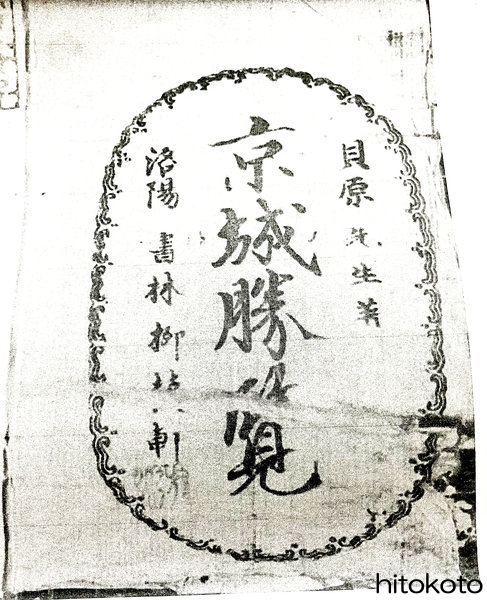 貝原先生著
京城勝覧
洛陽 書林柳枝軒
hitokoto